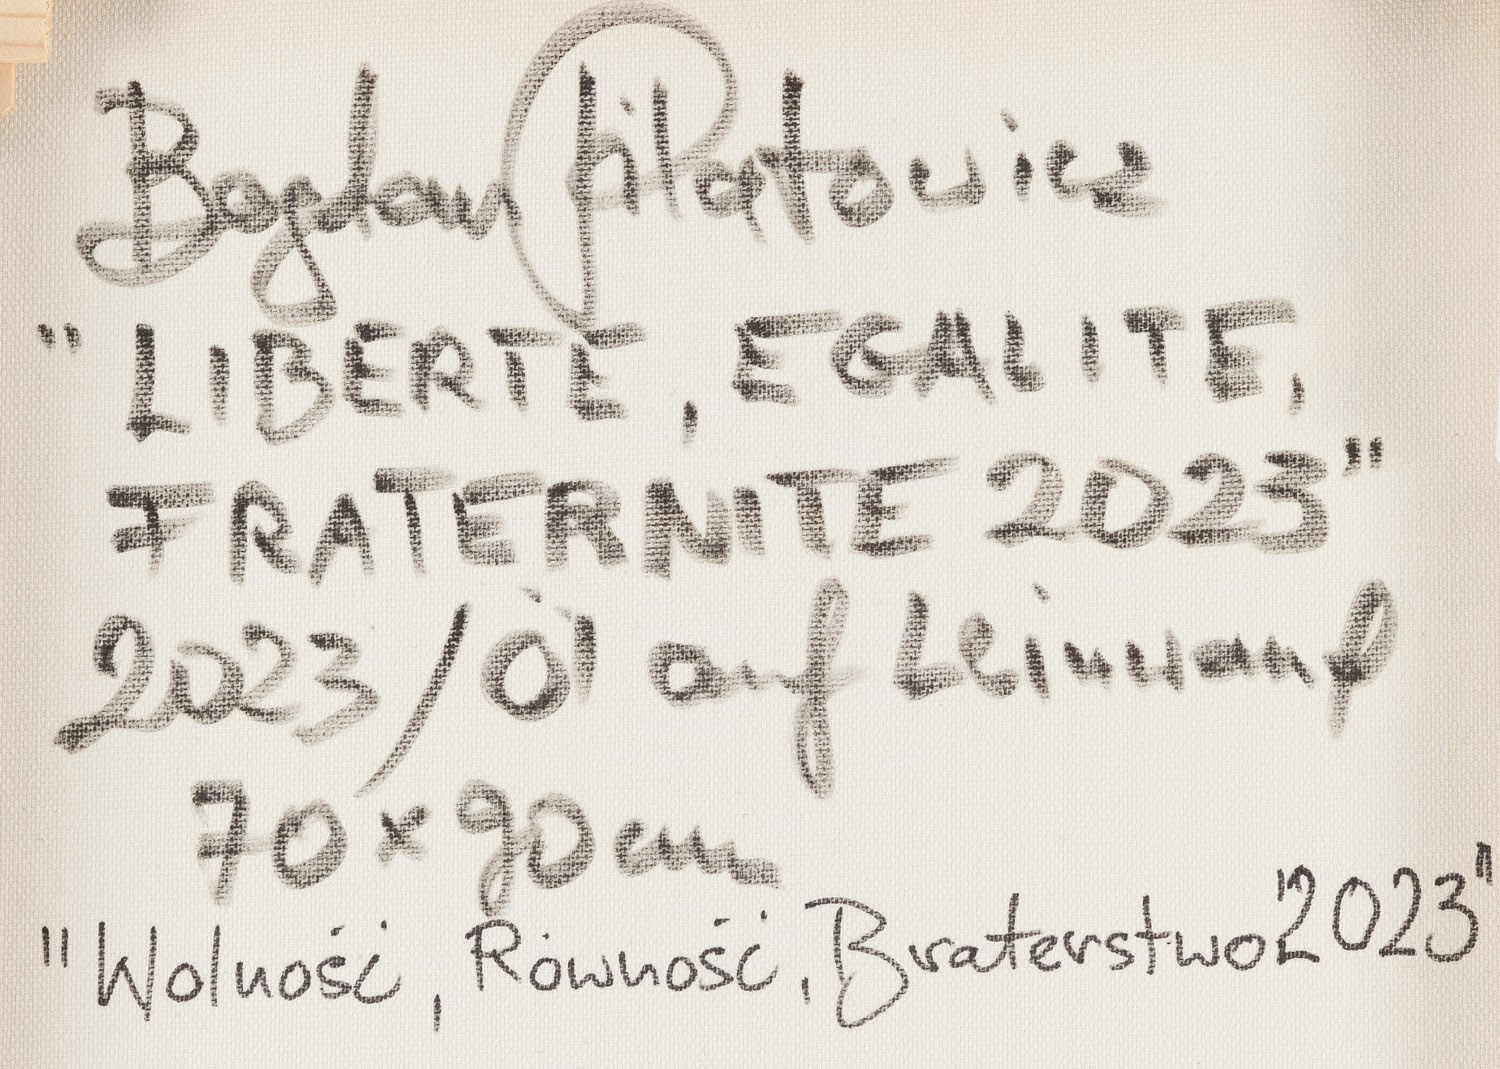 Bogdan Piłatowicz
"LIBERTE, EGALITE,
FRATERNITE 2023"
2023/Öl auf Leinwand
70 x 90 cm
"Wolność, Równość, Braterstwo 2023"